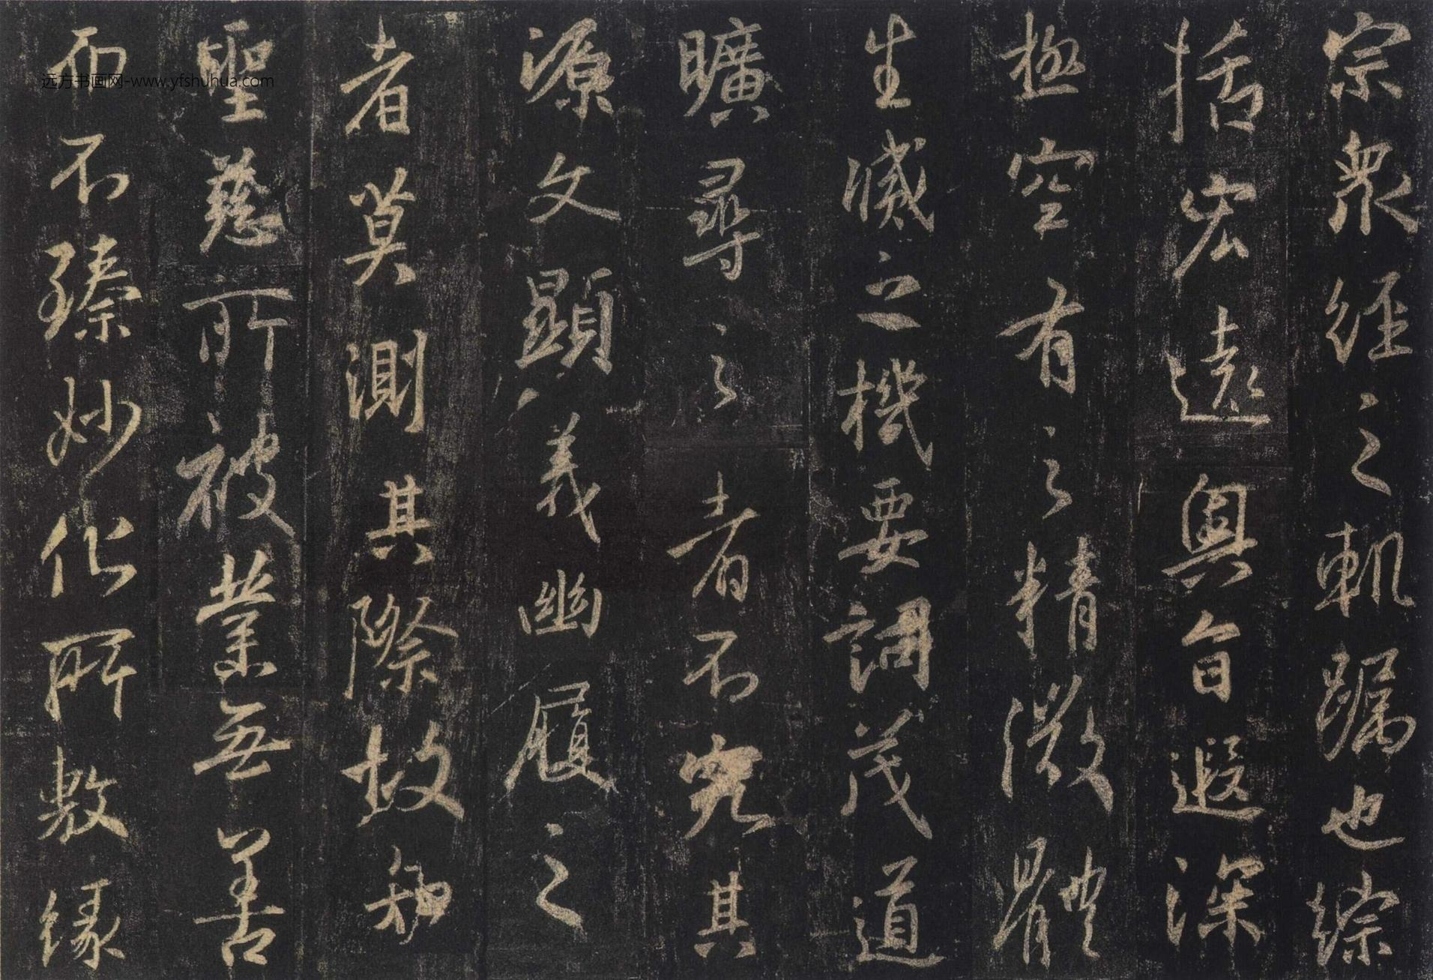 宗衆經之軌躅也綜
括宏遠奥旨遐深
極空有之精微體
生滅之機要詞茂道
曠尋之者不究其
源文顯義幽履之
者莫測其際故知
聖慈所被業無善
而不臻妙化所敷緣
远方书画网-www.yfshuhua.com